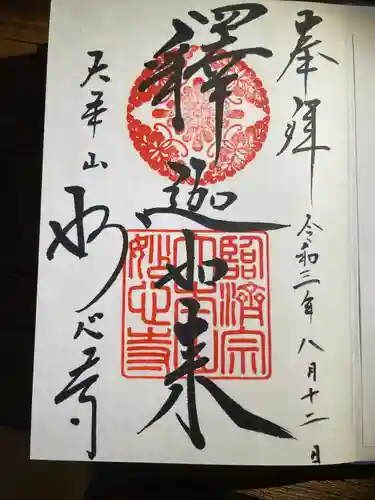 奉拝
令和三年八月十二日
釋迦如来
臨濟宗
妙心寺
山
妙心寺